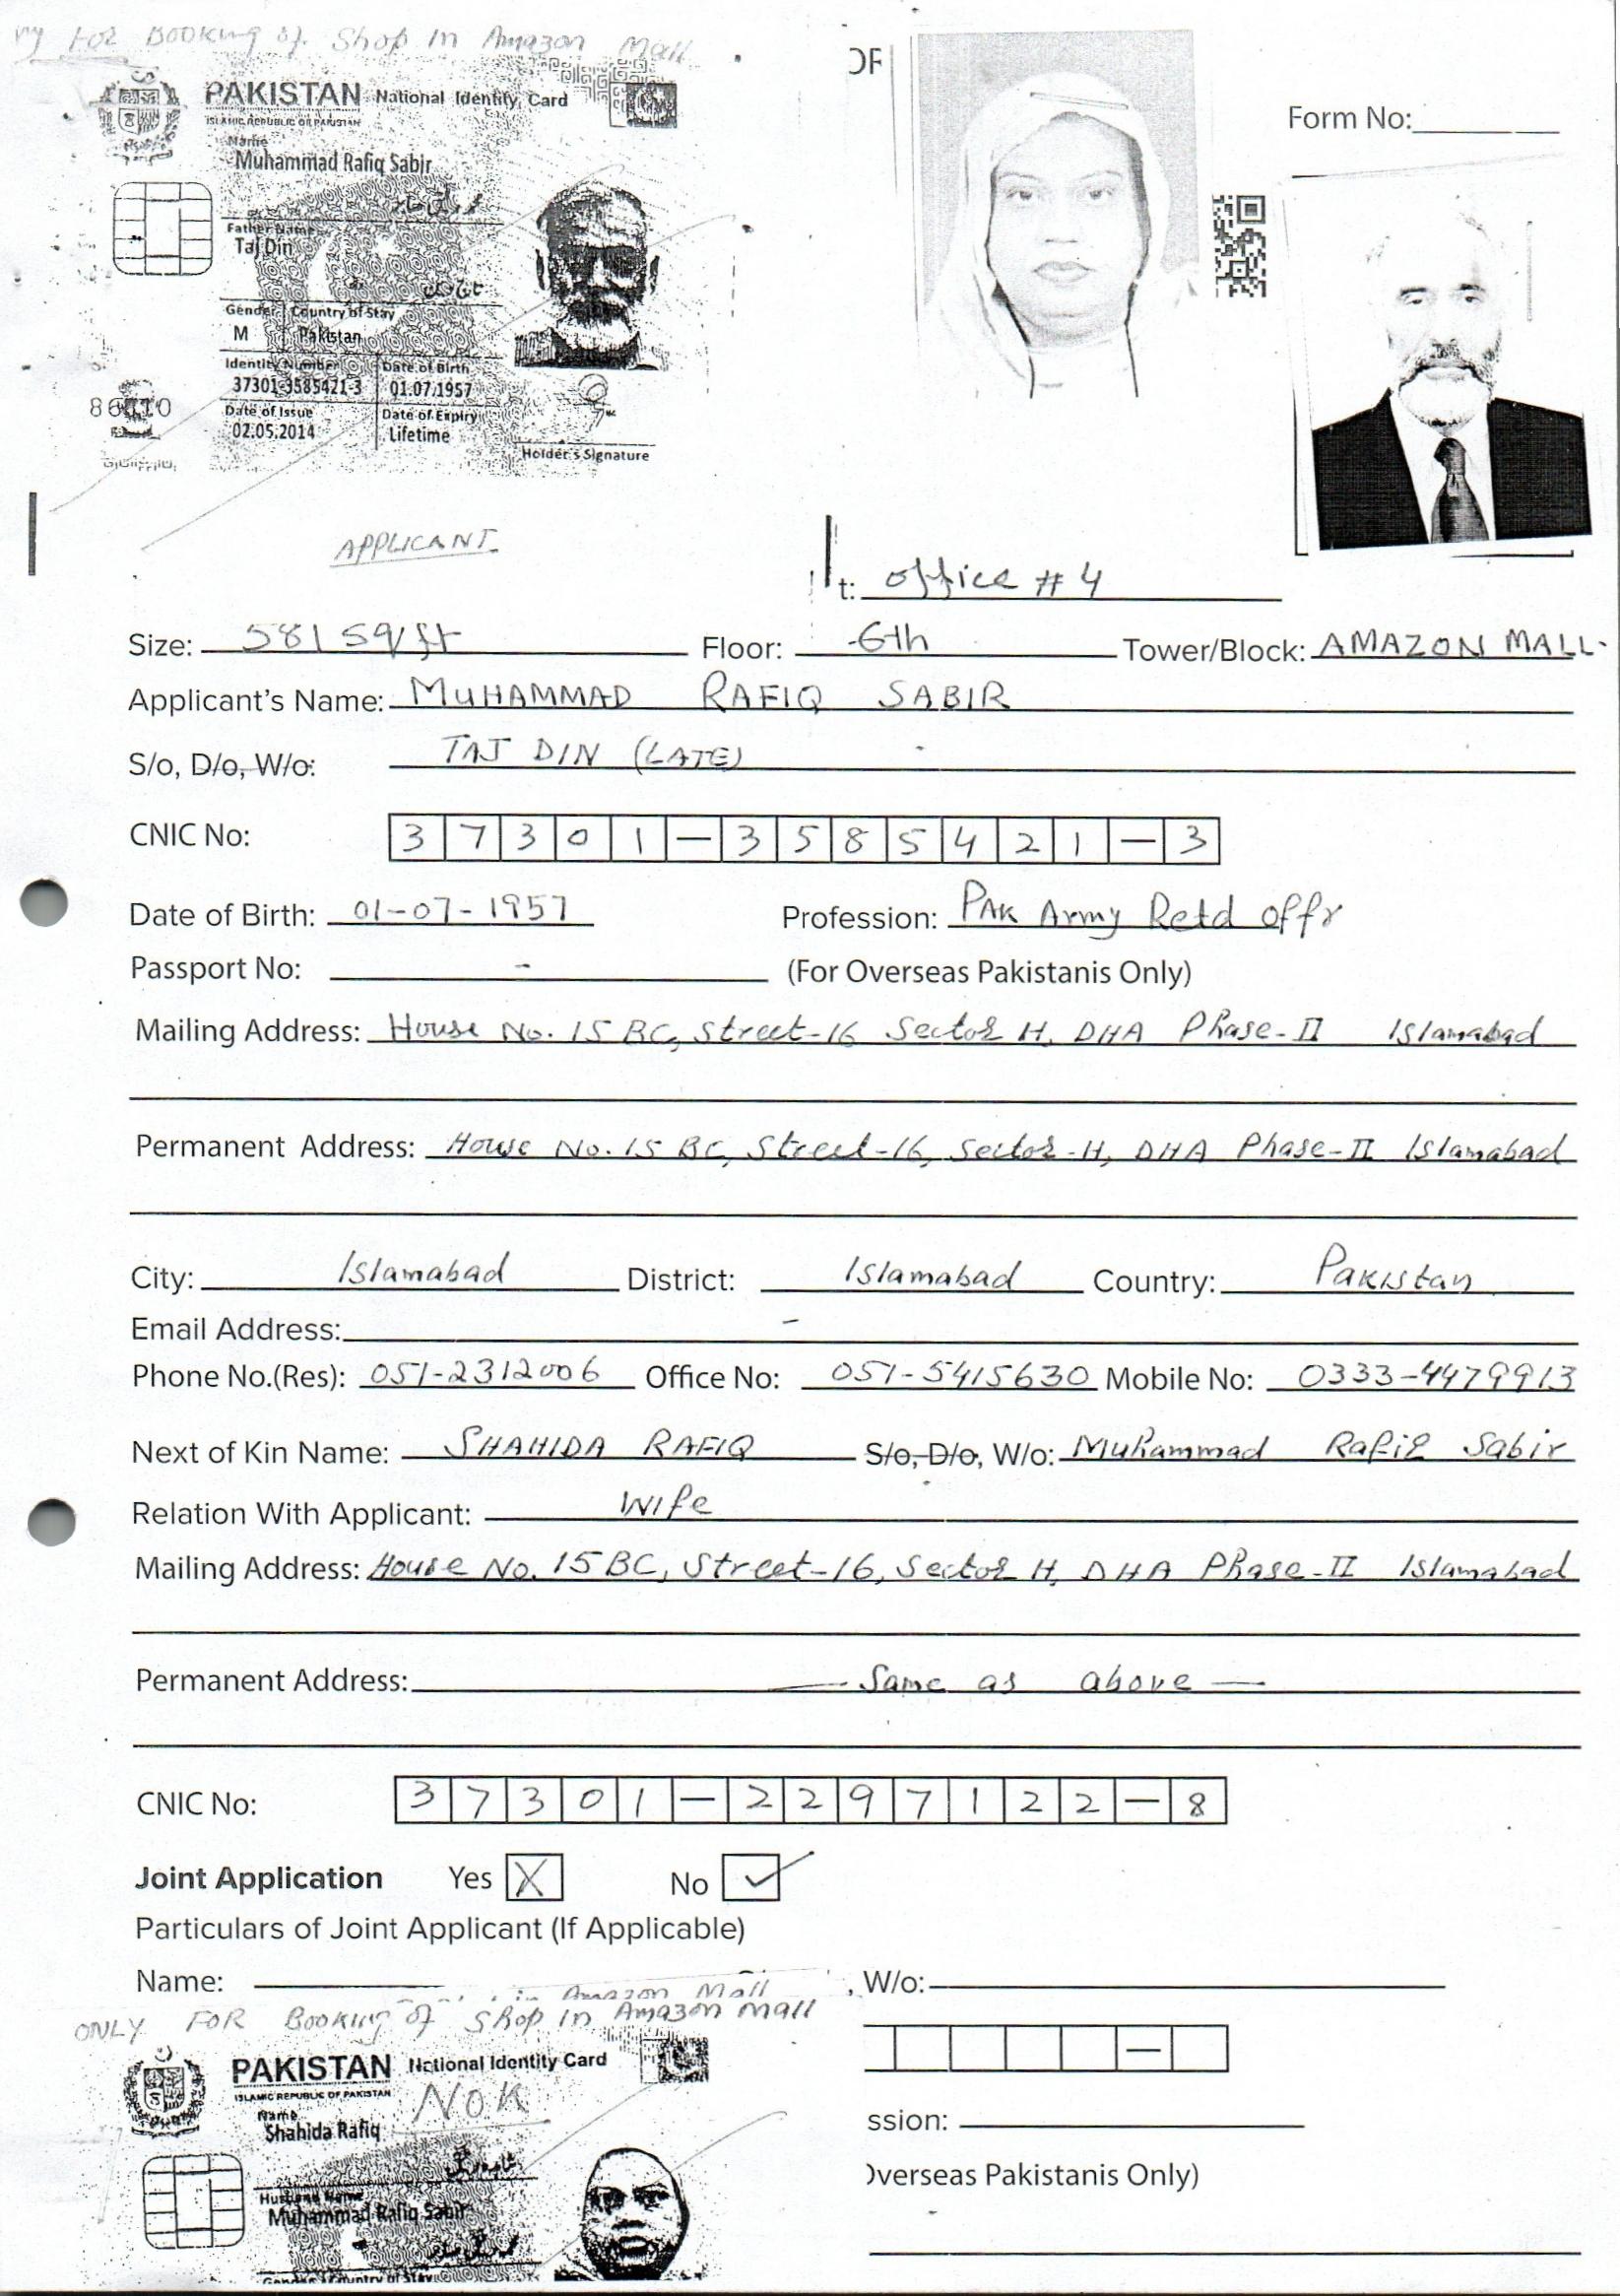 For Booking of Shop in Amazon Mall
PAKISTAN National Identity Card
ISLAMIC REPUBLIC OF PAKISTAN
Name
Muhammad Rafiq Sabir
Father Name
Taj Din
Gender Country of Stay
M Pakistan
Identity Number Date of Birth
37301-3585421-3 01.07.1957
Date of Issue Date of Expiry
02.05.2014 Lifetime
Holder's Signature
OF
Form No:
APPLICANT
t: office # 4
Size: 581 Sq/ft Floor: 6th Tower/Block: AMAZON MALL.
Applicant's Name: MUHAMMAD RAFIQ SABIR
S/o, D/o, W/o: TAJ DIN (LATE)
CNIC No: 37301-3585421-3
Date of Birth: 01-07-1957 Profession: PAK Army Retd offr
Passport No: - (For Overseas Pakistanis Only)
Mailing Address: House No. 15 BC, Street-16 Sector H, DHA Phase-II Islamabad
Permanent Address: House No. 15 BC, Street-16, Sector-H, DHA Phase-II Islamabad
City: Islamabad District: Islamabad Country: Pakistan
Email Address: -
Phone No.(Res): 051-2312006 Office No: 051-5415630 Mobile No: 0333-4479913
Next of Kin Name: SHAHIDA RAFIQ S/o, D/o, W/o: Muhammad Rafiq Sabir
Relation With Applicant: Wife
Mailing Address: House No. 15 BC, Street-16, Sector H, DHA Phase-II Islamabad
Permanent Address: — Same as above —
CNIC No: 37301-2297122-8
Joint Application Yes X No ✓
Particulars of Joint Applicant (If Applicable)
Name: , W/o:
in Amazon Mall
ONLY FOR Booking of Shop in Amazon Mall
PAKISTAN National Identity Card
ISLAMIC REPUBLIC OF PAKISTAN
NOK
Name
Shahida Rafiq
Husband Name
Muhammad Rafiq Sabir
Gender Country of Stay
—
ssion:
Overseas Pakistanis Only)